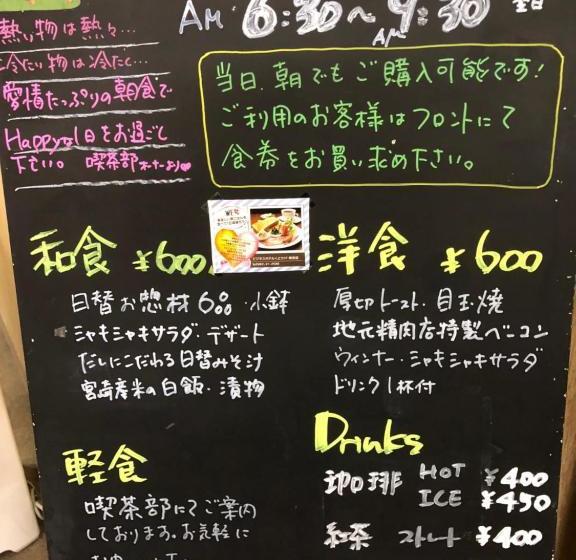 AM 6:30～AM 9:30
熱い物は熱々…
冷たい物は冷たく…
愛情たっぷりの朝食で
Happyな1日をお過ごし
下さい。 喫茶部オーナーより
当日、朝でもご購入可能です!
ご利用のお客様はフロントにて
食券をお買い求め下さい。
和食 ¥600
日替お惣材6品・小鉢
シャキシャキサラダ・デザート
だしにこだわる日替みそ汁
宮崎産米の白飯・漬物
洋食 ¥600
厚切トースト・目玉焼
地元精肉店特製ベーコン
ウィンナー・シャキシャキサラダ
ドリンク1杯付
軽食
喫茶部にてご案内
しております。お気軽に
Drinks
珈琲 HOT ¥400
ICE ¥450
紅茶 ストレート ¥400